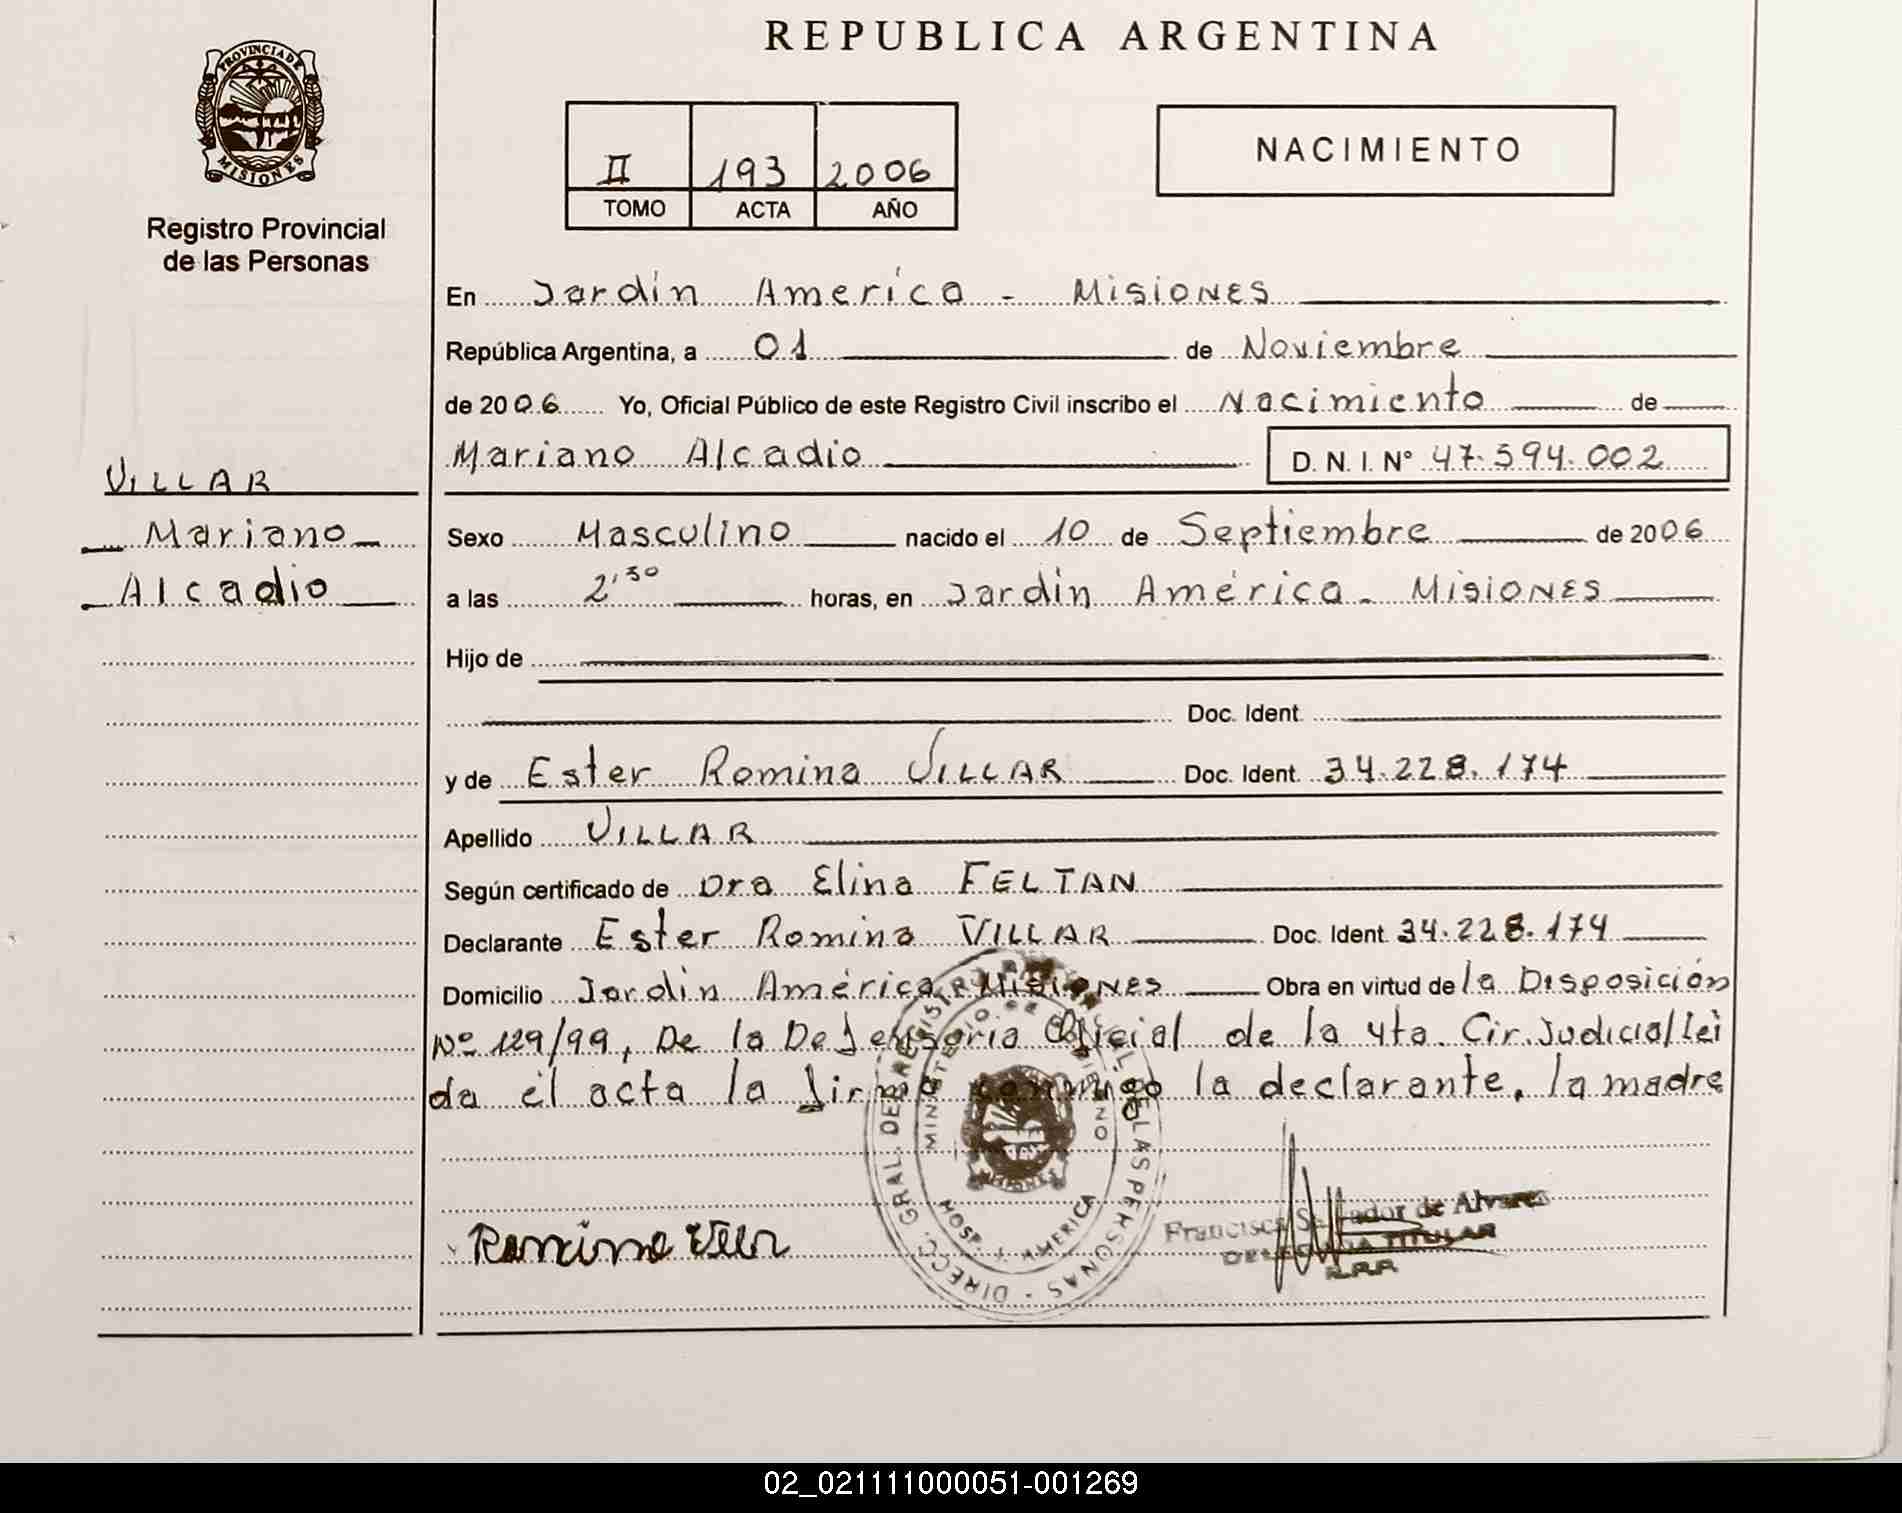 REPUBLICA ARGENTINA
PROVINCIA DE MISIONES
Registro Provincial
de las Personas
II 193 2006
TOMO ACTA AÑO
NACIMIENTO
En Jardín America - Misiones
República Argentina, a 01 de Noviembre
de 2006 Yo, Oficial Público de este Registro Civil inscribo el Nacimiento de
Mariano Alcadio D. N. I. N° 47.594.002
VILLAR
Mariano
Alcadio
Sexo Masculino nacido el 10 de Septiembre de 2006
a las 2'30 horas, en Jardín América - Misiones
Hijo de
Doc. Ident.
y de Ester Romina VILLAR Doc. Ident. 34.228.174
Apellido VILLAR
Según certificado de Dra Elina FELTAN
Declarante Ester Romina VILLAR Doc. Ident. 34.228.174
Domicilio Jardín América Misiones Obra en virtud de la Disposición
Nº 129/99, De la Defensoria Oficial de la 4ta. Cir. Judicial lei
da el acta la firma conmigo la declarante, la madre
DIRECC. GRAL. DE REGISTRO PROVINCIAL DE LAS PERSONAS
MINISTERIO DE GOBIERNO
MISIONES
HOSP. J. AMERICA
Romina
Francisca Salvador de Alvarez
DELEGADA TITULAR
R.P.P.
02_021111000051-001269